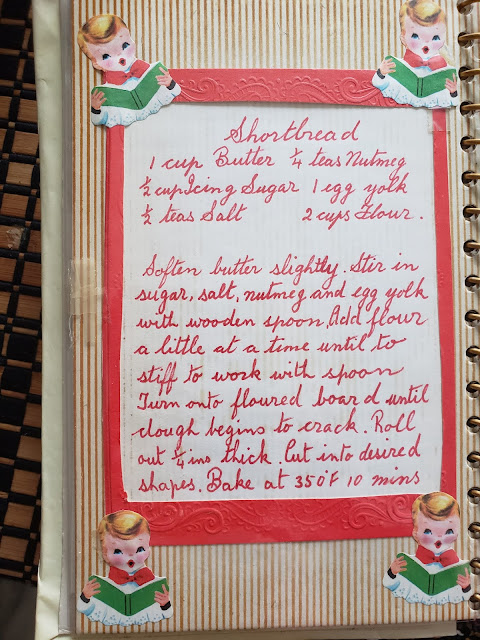 Shortbread
1 cup Butter ¼ teas Nutmeg
½ cup Icing Sugar 1 egg yolk
½ teas Salt 2 cups Flour.
Soften butter slightly. Stir in
sugar, salt, nutmeg and egg yolk
with wooden spoon. Add flour
a little at a time until to
stiff to work with spoon
Turn onto floured board until
dough begins to crack. Roll
out ¼ ins thick. Cut into desired
shapes. Bake at 350°F 10 mins